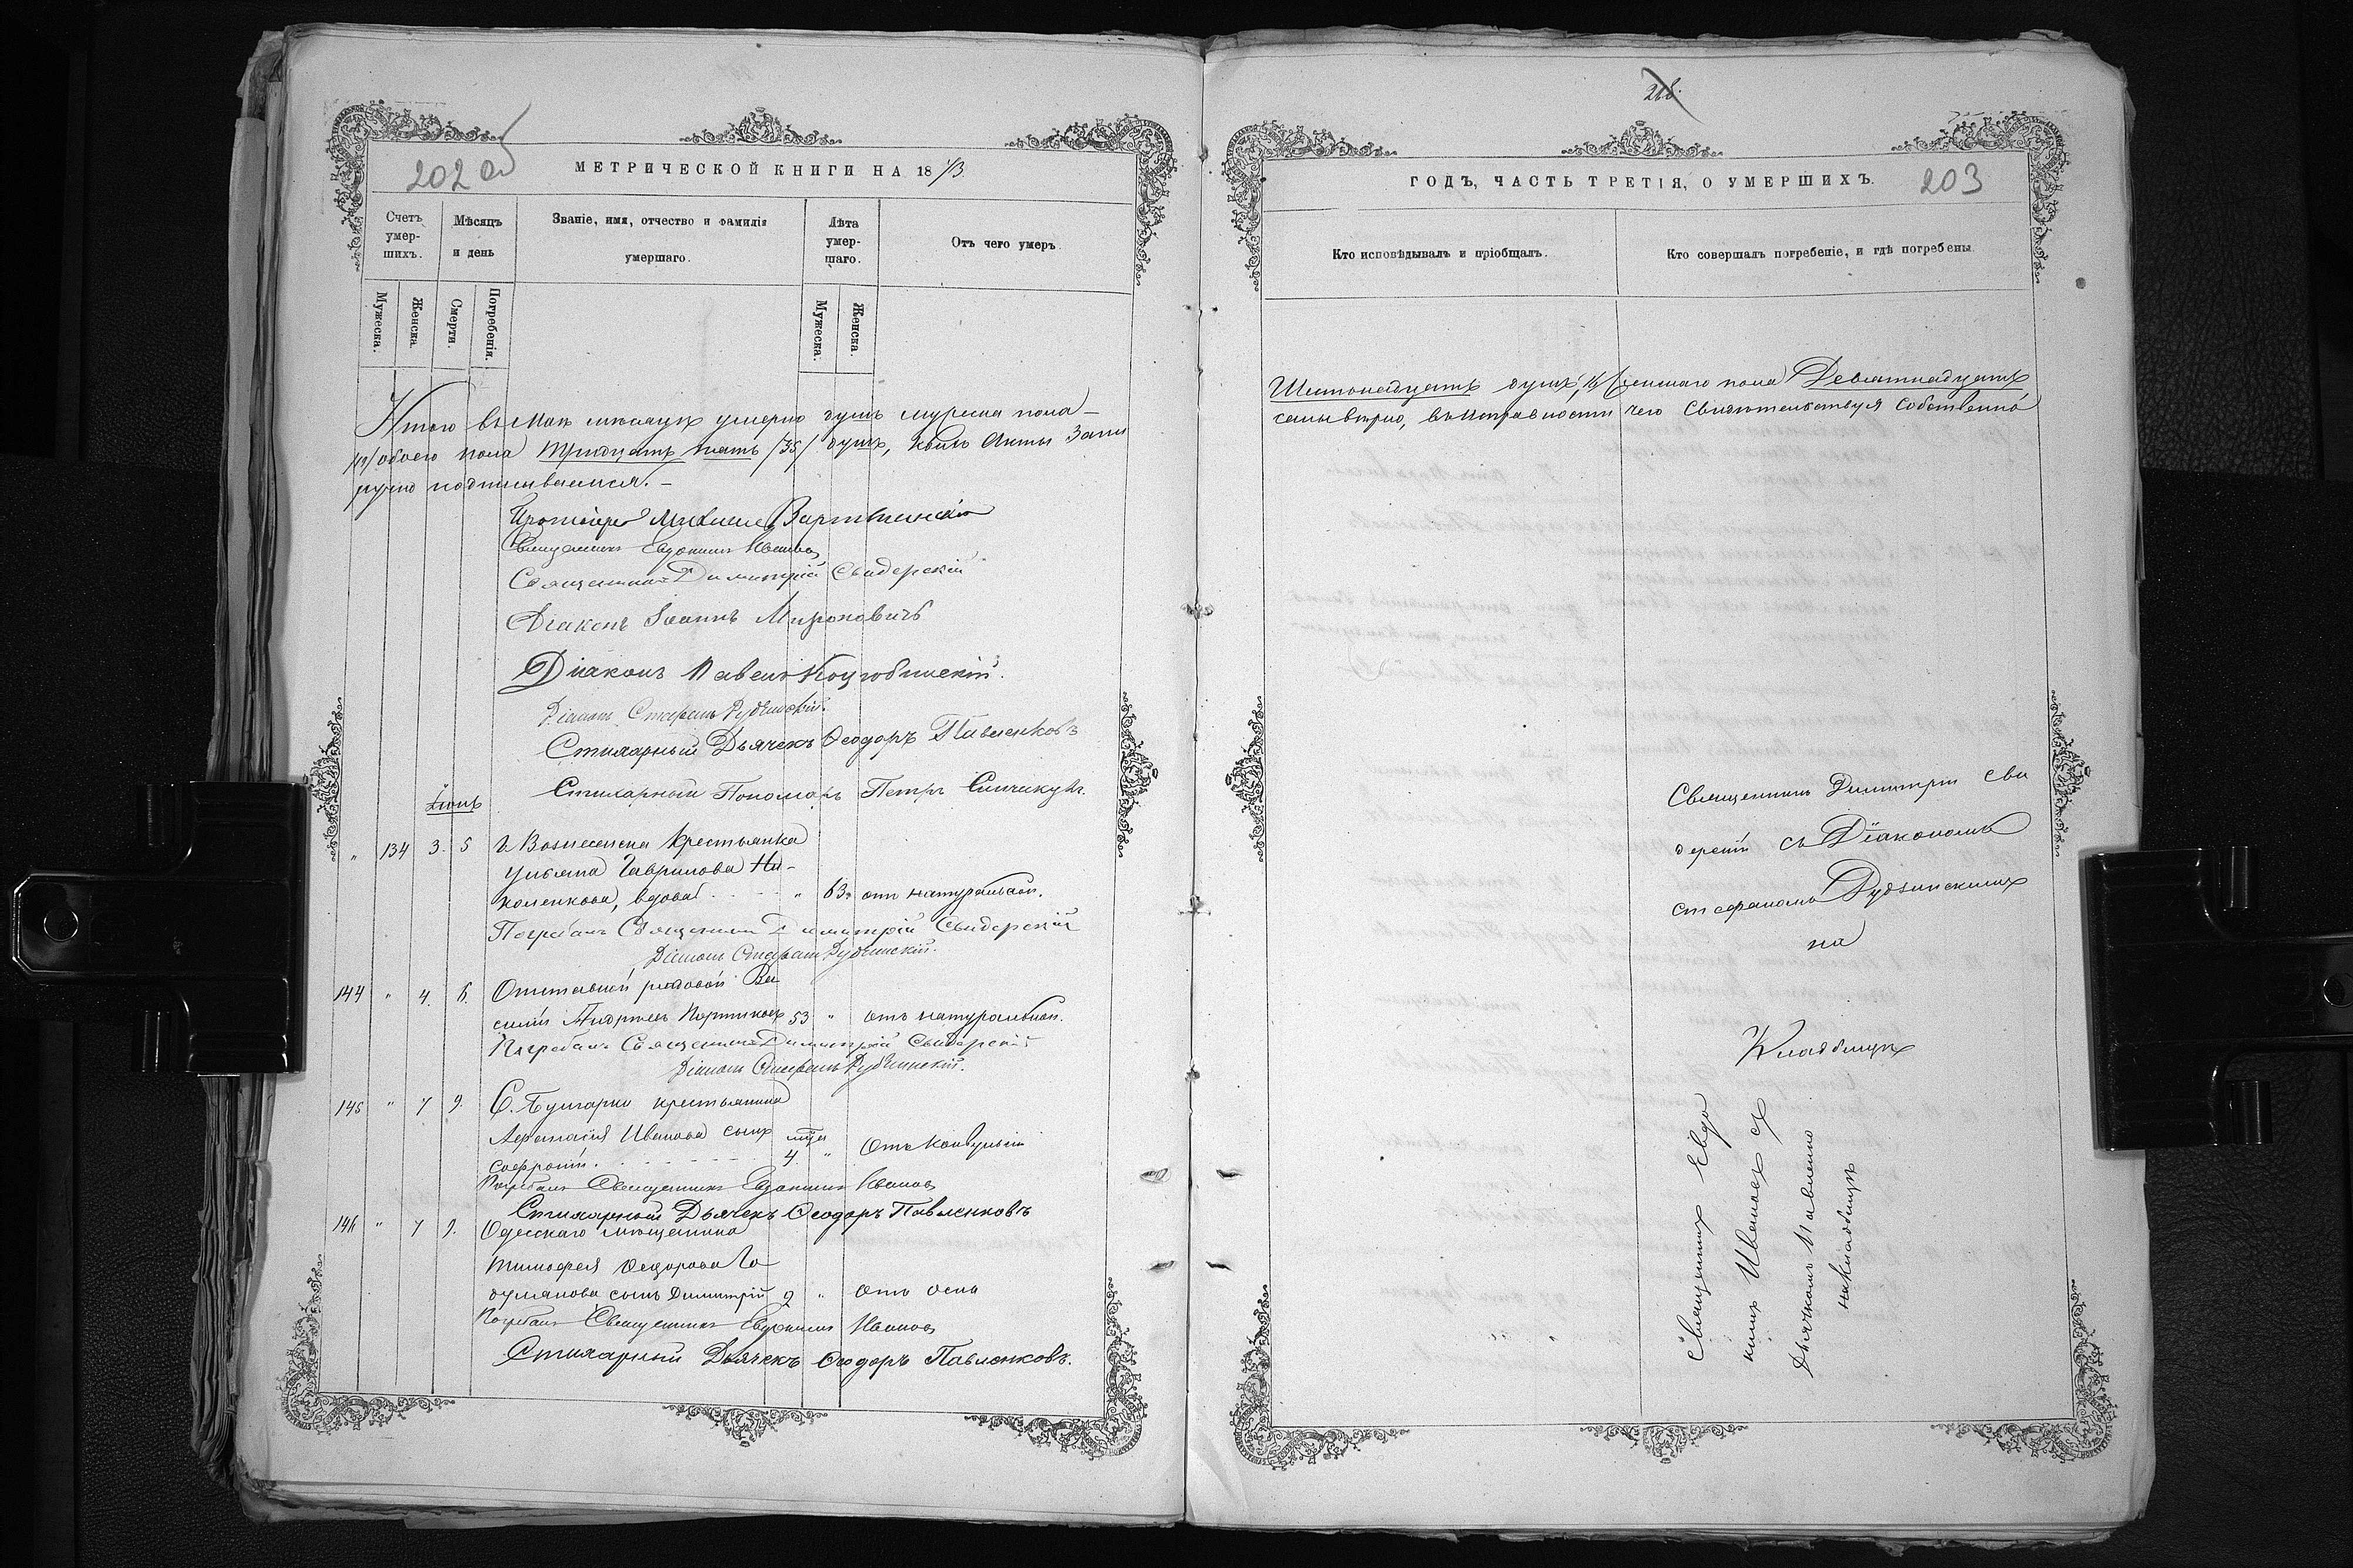 202 об
МЕТРИЧЕСКОЙ КНИГИ НА 1873
Счетъ умер-шихъ.
Мѣсяцъ и день
Званіе, имя, отчество и фамилія умершаго.
Лѣта умер-шаго.
Отъ чего умеръ.
Мужеска.
Женска.
Смерти.
Погребенія.
Мужеска.
Женска.
Итого въ Маѣ мѣсяцѣ умерло душъ мужеска пола –
/19/ обоего пола Тридцать пять /35/ душъ, Акты Запи
ручно подписываемся. –
Протоіерей
Священникъ Евдокимъ Ивановъ
Священникъ Димитрій Свидерскій
Діаконъ Іоаннъ Мироновичъ
Діаконъ Павелъ Коцюбинскій.
Діаконъ Стефанъ Рудзинскій.
Стихарный Дьячекъ Ѳеодоръ Павленковъ
Стихарный Пономарь Петръ
Іюнь
" 134 3. 5 г. Вознесенска крестьянка
Ульяна Гаврилова Ни-
коленкова, вдова " 63 отъ натуральной.
Погребалъ Священникъ Димитрій Свидерскій
Діаконъ Стефанъ Рудзинскій.
144 " 4. 6. Отставной рядовой Ва
силій Андреевъ 53 " отъ натуральной.
Погребалъ Священникъ Димитрій Свидерскій
Діаконъ Стефанъ Рудзинскій.
145 " 7 9. С. Булгарки крестьянина
Аѳанасія Иванова сынъ мца
Софроній. 4. " Отъ Конвульсій
Погребалъ Священникъ Евдокимъ Ивановъ
Стихарный Дьячекъ Ѳеодоръ Павленковъ
146 " 7 9. Одесскаго мѣщанина
Тимофея Ѳедорова
сынъ Димитрій 2 " отъ оспы
Погребалъ Священникъ Евдокимъ Ивановъ
Стихарный Дьячекъ Ѳеодоръ Павленковъ.
ГОДЪ, ЧАСТЬ ТРЕТІЯ, О УМЕРШИХЪ.
203
Кто исповѣдывалъ и пріобщалъ.
Кто совершалъ погребеніе, и гдѣ погребены.
Шестьнадцать душъ, /16/ женскаго пола Девятнадцать
саны вѣрно, въ исправности чего Свидѣтельствуя Собственно
Священникъ Димитрій Сви
дерскій съ Діакономъ
Стефаномъ Рудзинскимъ
на
Кладбищѣ
Священникъ Евдо
кимъ Ивановъ съ
Дьячкомъ Павленко
на кладбищѣ